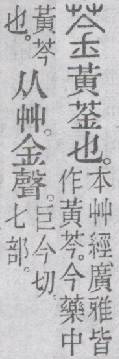 菳黃菳也。
本艸經廣雅皆
作黃芩。今藥中
黃芩
也。
从艸。金聲。
巨今切。
七部。